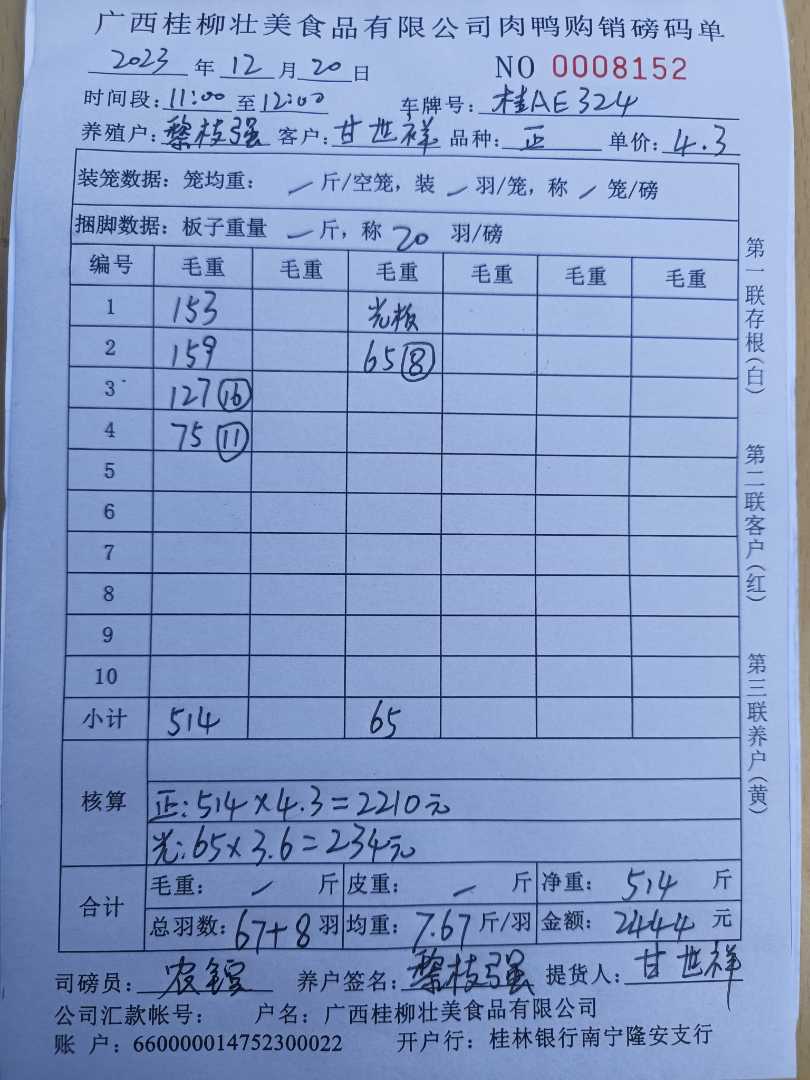 广西桂柳壮美食品有限公司肉鸭购销磅码单
2023 年 12 月 20 日 NO 0008152
时间段: 11:00 至 12:00 车牌号: 桂AE324
养殖户: 黎枝强 客户: 甘世祥 品种: 正 单价: 4.3
装笼数据: 笼均重: — 斤/空笼, 装 — 羽/笼, 称 — 笼/磅
捆脚数据: 板子重量 — 斤, 称 20 羽/磅
编号 毛重 毛重 毛重 毛重 毛重 毛重
1 153 光板
2 159 65 ⑧
3 127 ⑯
4 75 ⑪
5
6
7
8
9
10
小计 514 65
核算
正: 514×4.3=2210元
光: 65×3.6=234元
合计
毛重: — 斤 皮重: — 斤 净重: 514 斤
总羽数: 67+8 羽 均重: 7.67 斤/羽 金额: 2444 元
司磅员: 农 养户签名: 黎枝强 提货人: 甘世祥
公司汇款帐号: 户名: 广西桂柳壮美食品有限公司
账 户: 660000014752300022 开户行: 桂林银行南宁隆安支行
第一联存根(白)
第二联客户(红)
第三联养户(黄)